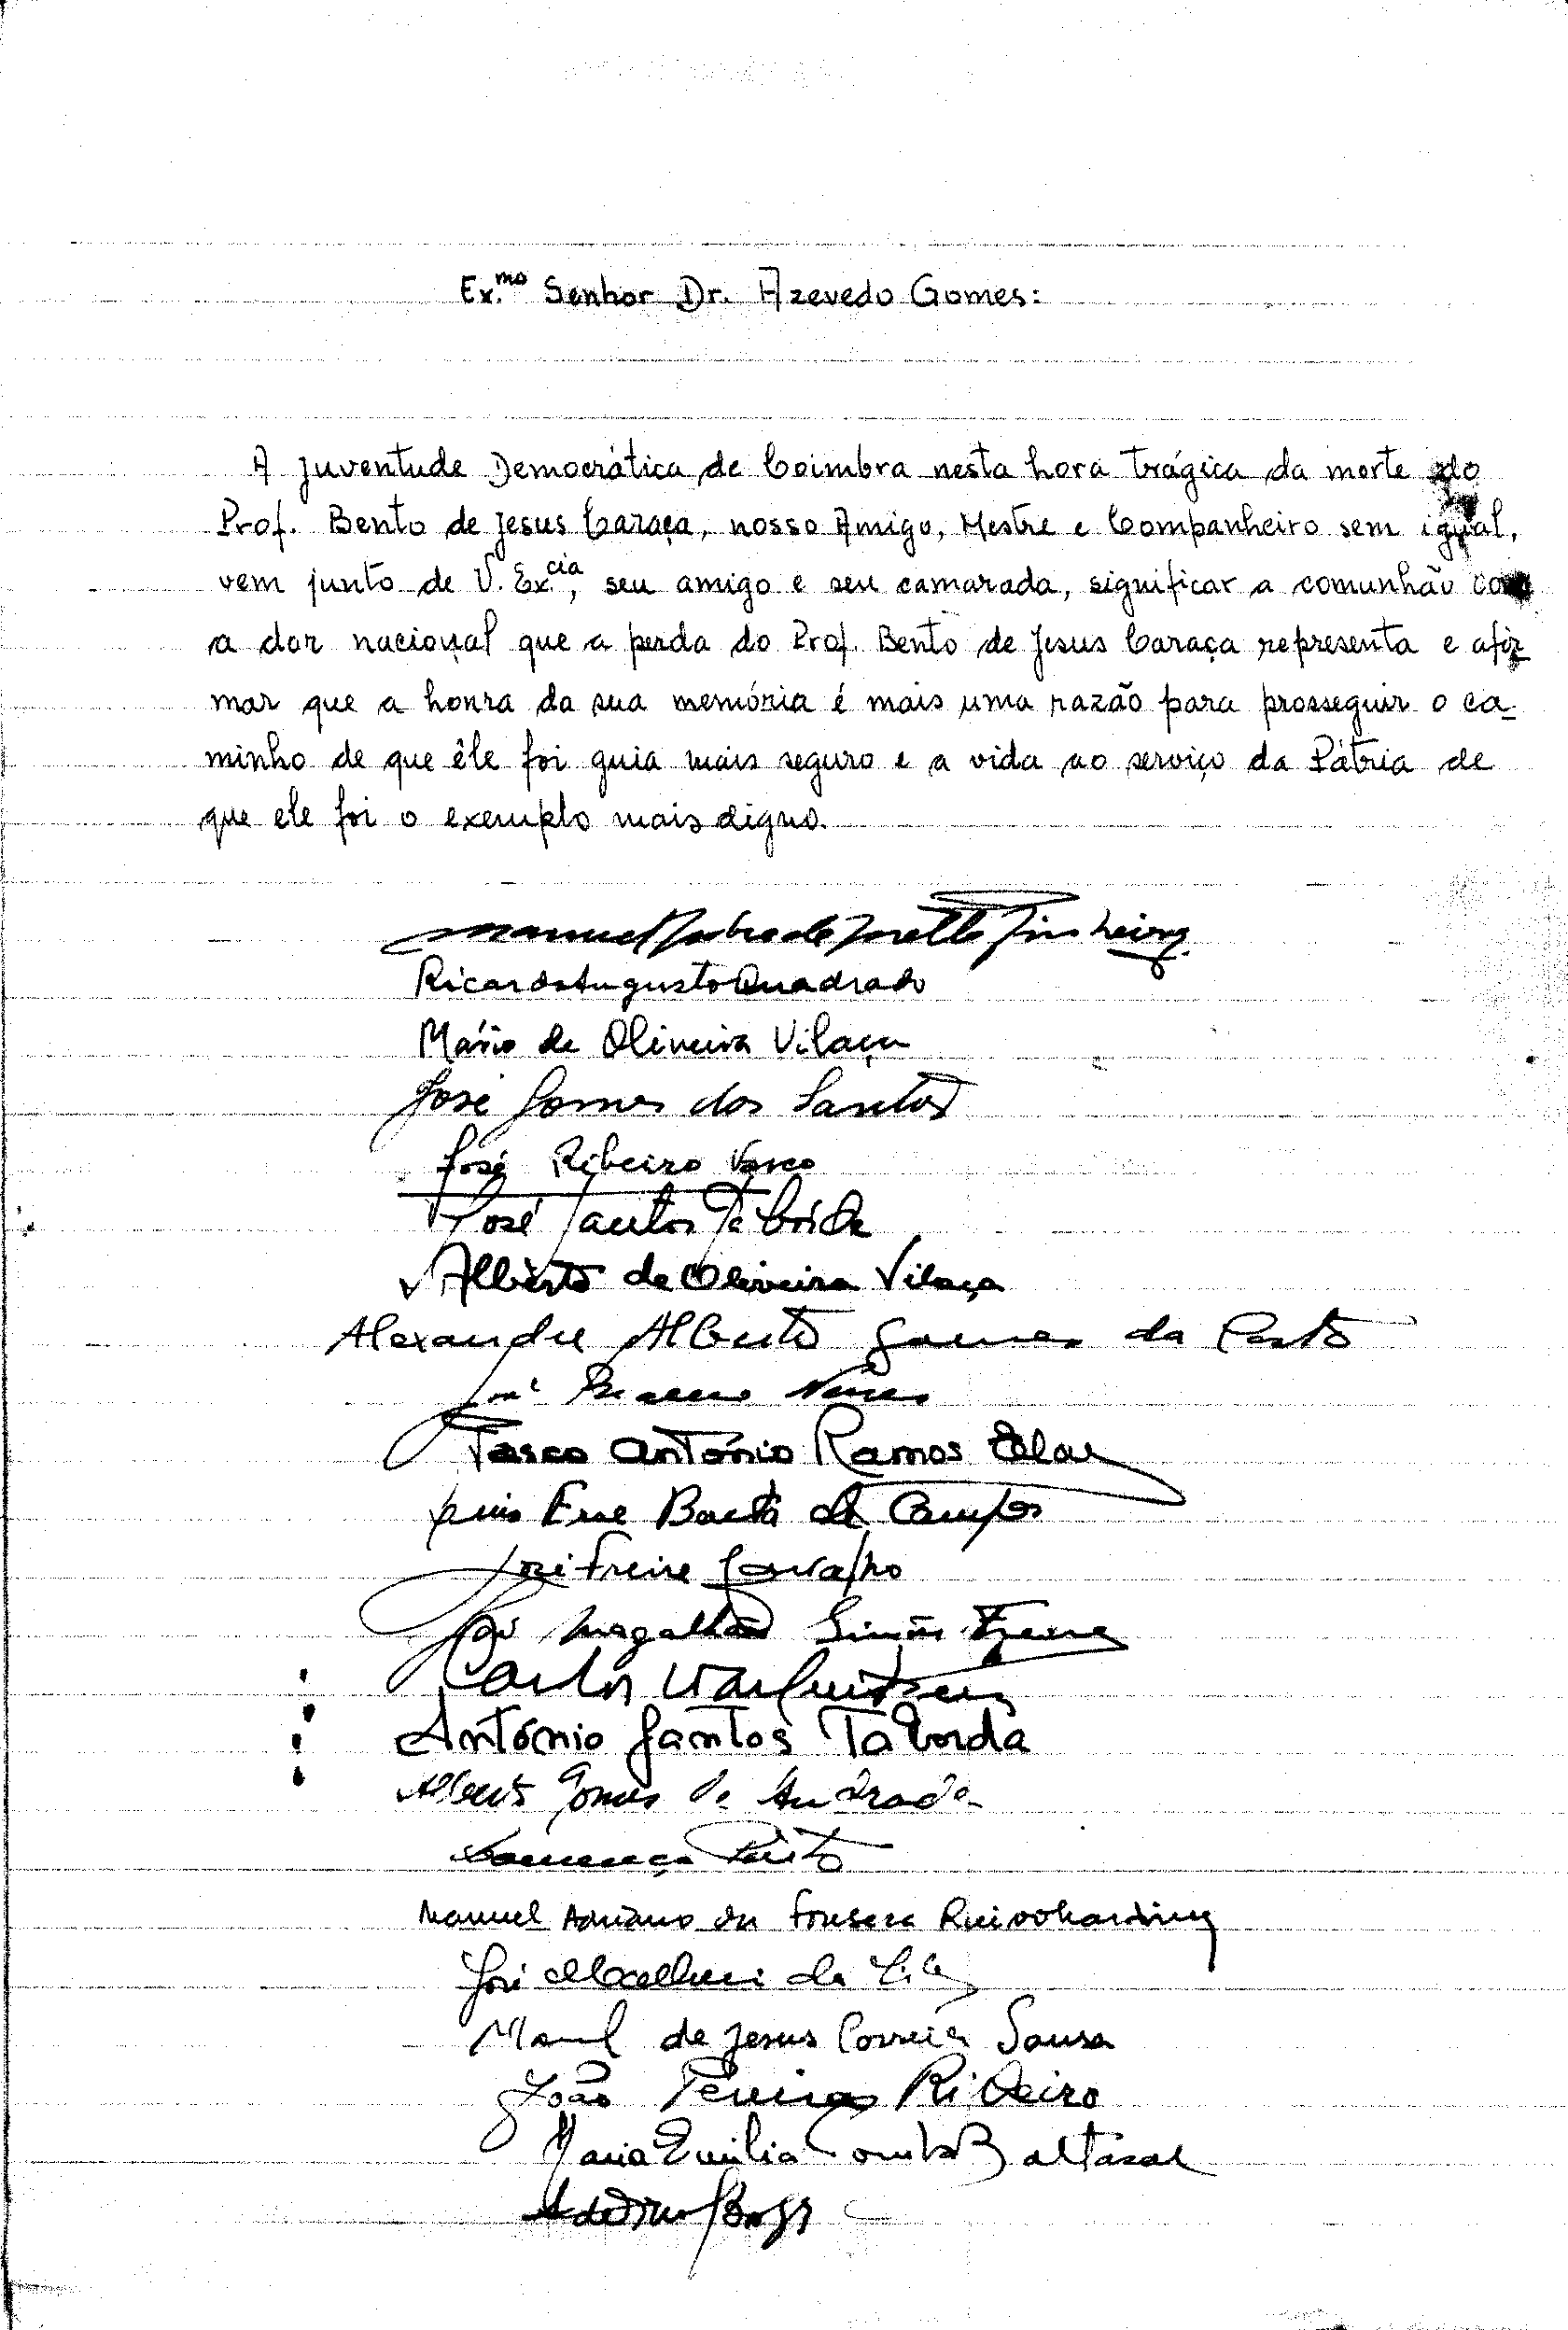 Ex.mo Senhor Dr. Azevedo Gomes:
A Juventude Democrática de Coimbra nesta hora trágica da morte do
Prof. Bento de Jesus Caraça, nosso Amigo, Mestre e Companheiro sem igual,
vem junto de V. Ex.cia, seu amigo e seu camarada, significar a comunhão com
a dor nacional que a perda do Prof. Bento de Jesus Caraça representa e afir
mar que a honra da sua memória é mais uma razão para prosseguir o ca-
minho de que êle foi guia mais seguro e a vida ao serviço da Pátria de
que ele foi o exemplo mais digno.
Manuel
Ricardo Augusto Quadrado
Mário de Oliveira Vilaça
José Gomes dos Santos
José Ribeiro Vasco
José Santos Taborda
Alberto de Oliveira Vilaça
Alexandre Alberto Gomes da Costa
Nunes
Vasco António Ramos
Luis Baeta de Campos
José Freire Carvalho
José Magalhães Simões Freire
Carlos
António Santos Taborda
Alberto Gomes de Andrade
Manuel Adriano da Fonseca
José da
Manuel de Jesus Correia Sousa
João Ribeiro
Maria Emilia Baltasar